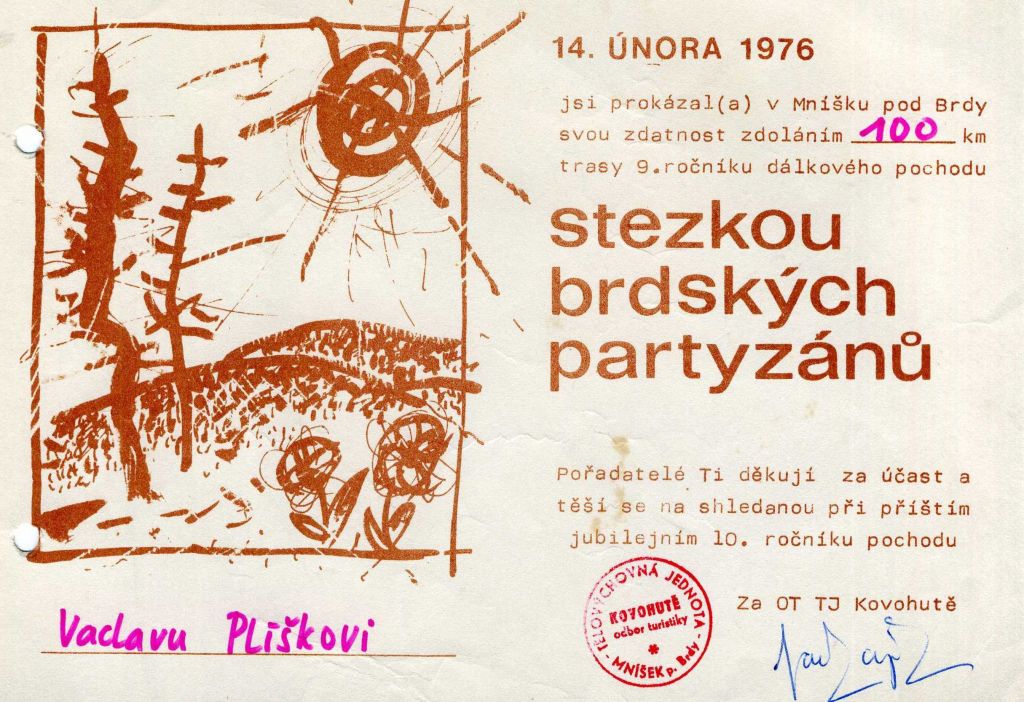 14. ÚNORA 1976
jsi prokázal(a) v Mníšku pod Brdy
svou zdatnost zdoláním 100 km
trasy 9.ročníku dálkového pochodu
stezkou
brdských
partyzánů
Pořadatelé Ti děkují za účast a
těší se na shledanou při příštím
jubilejním 10. ročníku pochodu
Za OT TJ Kovohutě
TĚLOVÝCHOVNÁ JEDNOTA
KOVOHUTĚ
odbor turistiky
- MNÍŠEK p. Brdy -
Vaclavu Plíškovi